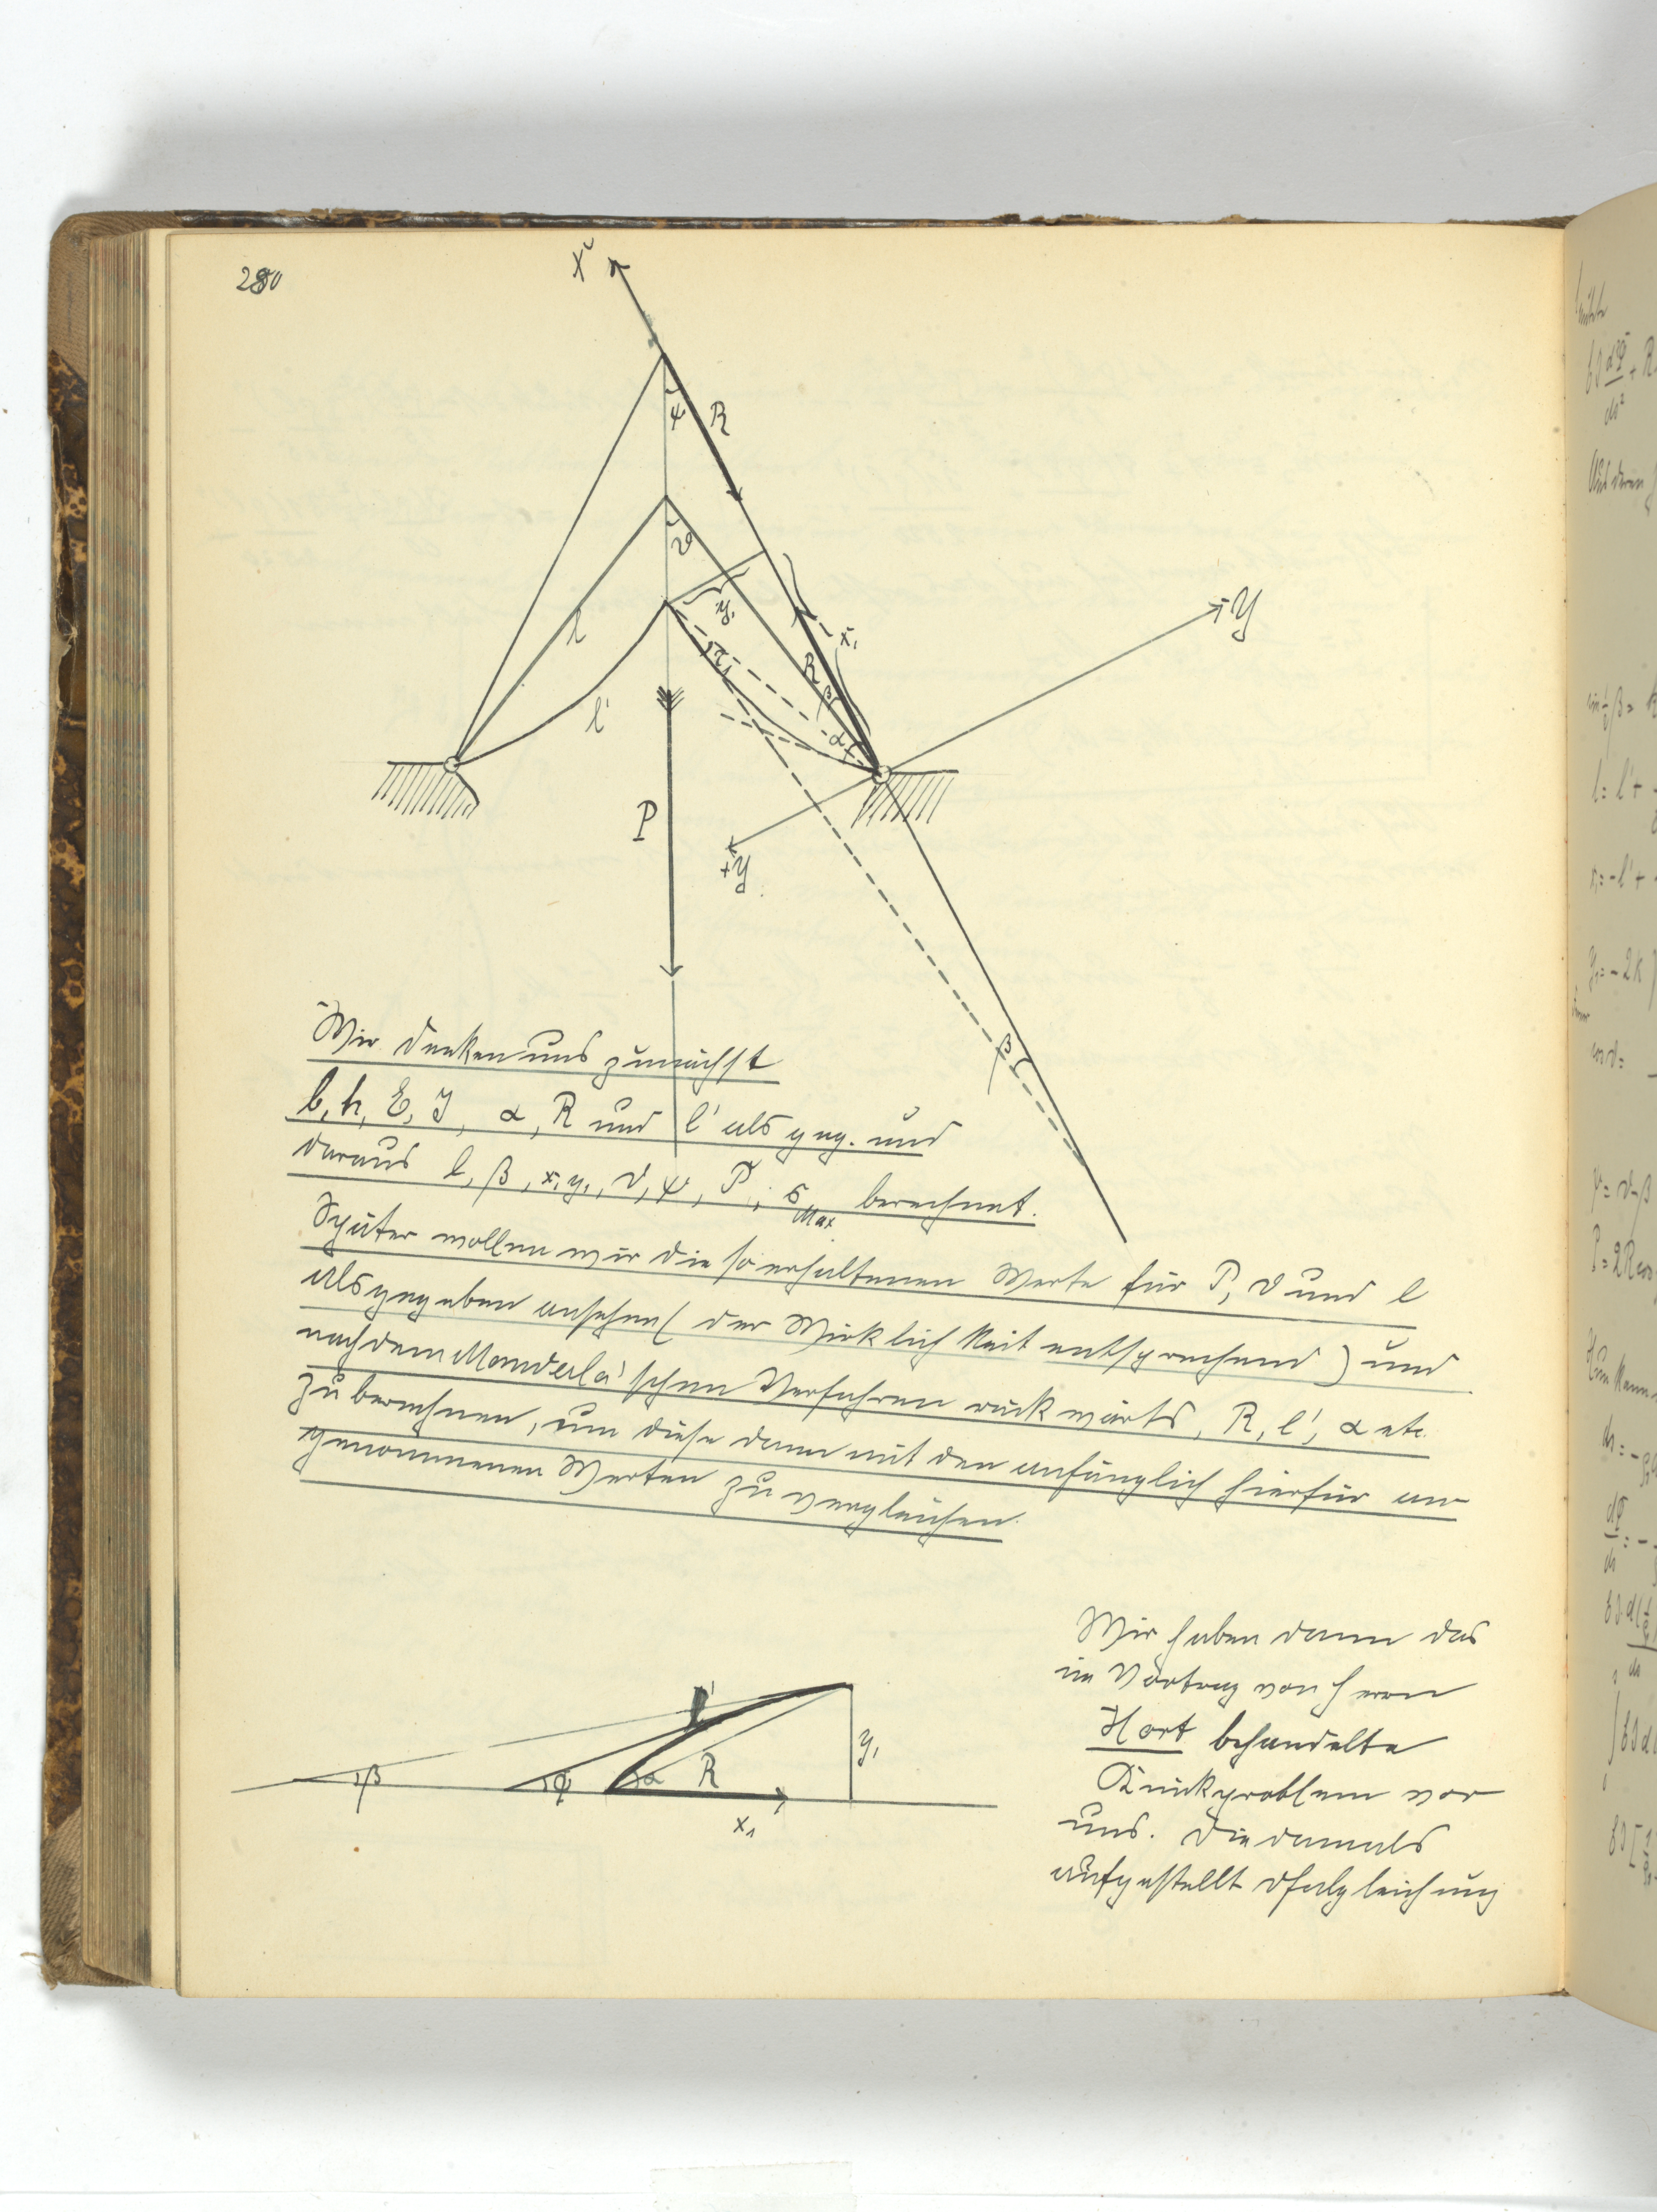 280
X
ψ
R
ϑ
y₁
x₁
-Y
l
τ₁
R
β
l'
α
P
+Y
β
Wir denken uns zunächst
b, h, E, J, α, R und l' als geg. und
daraus l, β, x₁ y₁, ϑ, ψ, P, σ Max berechnet.
Später wollen wir die so erhaltenen Werte für P, ϑ und l
als gegeben ansehen (der Wirklichkeit entsprechend) und
nach dem Manderla'schen Verfahren rückwärts, R, l', α etc.
zu berechnen, um diese dann mit den anfänglich hierfür an-
genommenen Werten zu vergleichen.
l'
y₁
β
φ
α
R
x₁
Wir haben dann das
im Vortrag von Herrn
Hort behandelte
Knickproblem vor
uns. Die damals
aufgestellt